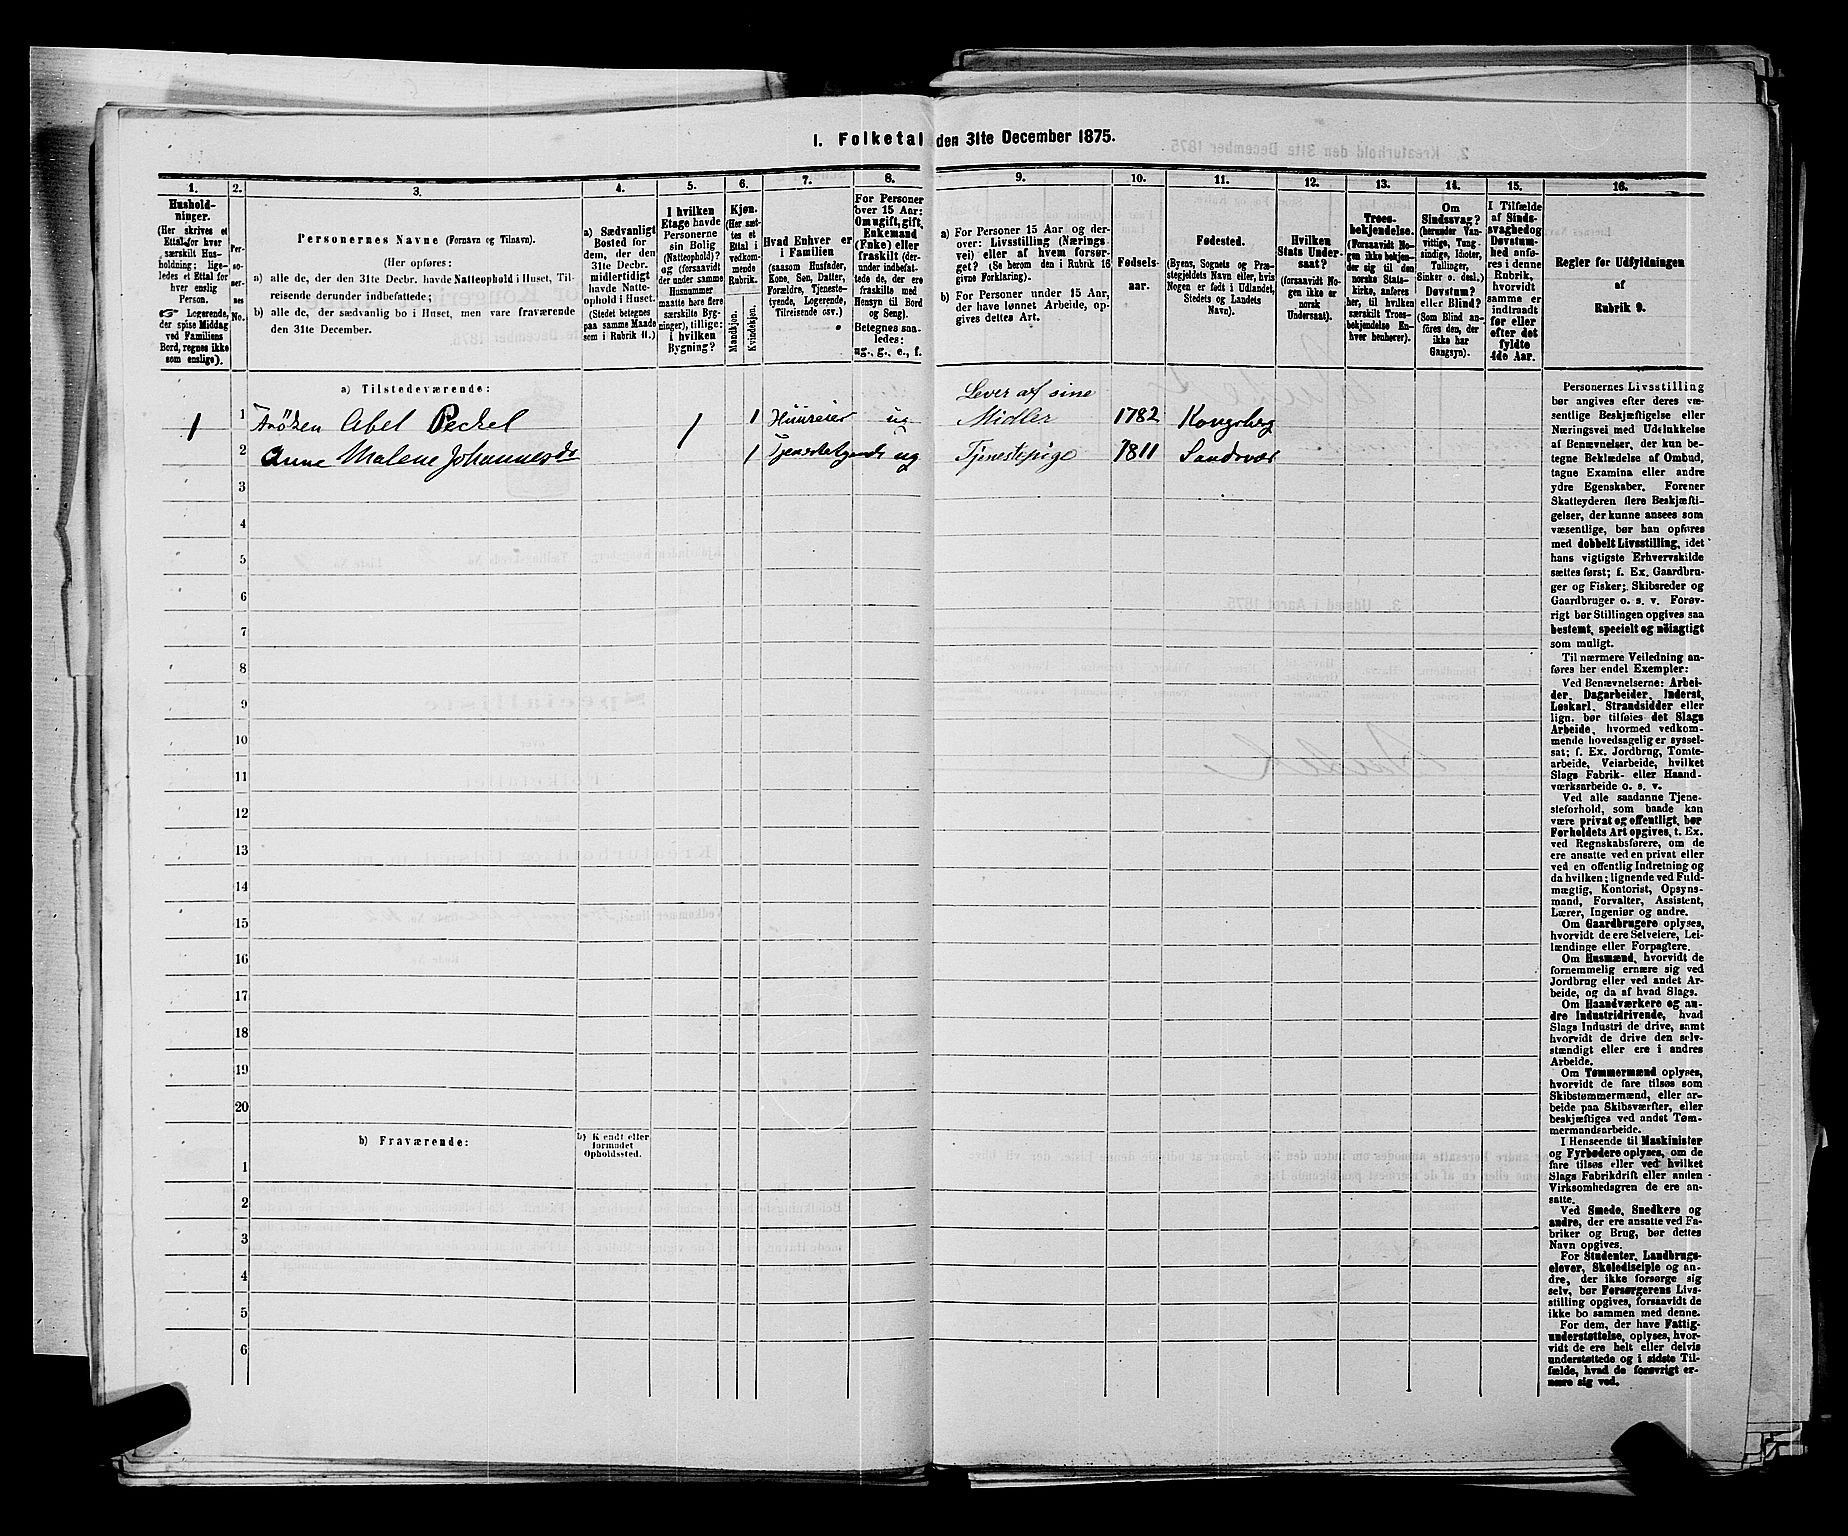 1. Folketal den 31te December 1875.
1.
2.
3.
4.
5.
6.
7.
8.
9.
10.
11.
12.
13.
14.
15.
16.
Hushold-
ninger.
(Her skrives et
Ettal for hver
særskilt Hus-
holdning; lige-
ledes et Ettal for
hver enslig
Person.
☞ Logerende,
der spise Middag
ved Familiens
Bord, regnes ikke
som enslige).
Per-
so-
ner-
nes
No.
Personernes Navne (Fornavn og Tilnavn).
(Her opføres:
a) alle de, der den 31te Decbr. havde Natteophold i Huset, Til-
reisende derunder indbefattede;
b) alle de, der sædvanlig bo i Huset, men vare fraværende
den 31te December.
a) Sædvanligt
Bosted for
dem, der den
31te Decbr.
midlertidigt
havde Natte-
ophold i Huset.
(Stedet betegnes
paa samme Maade
som i Rubrik 11.)
I hvilken
Etage havde
Personerne
sin Bolig
(Natteophold)?
og (forsaavidt
der under samme
Husnummer
maatte høre flere
særskilte Byg-
ninger), tillige:
i hvilken
Bygning?
Kjøn.
(Her sæt-
tes et
Ettal i
vedkom-
mende
Rubrik.
Mandkjøn.
Kvindekjøn.
Hvad Enhver er
i Familien
(saasom Husfader,
Kone, Søn, Datter,
Forældre, Tjeneste-
tyende, Logerende,
Tilreisende osv.)
For Personer
over 15 Aar:
Om ugift, gift,
Enkemand
(Enke) eller
fraskilt (der-
under indbefat-
tede de, der ere
fraskilte med
Hensyn til Bord
og Seng).
Betegnes saa-
ledes:
ug., g., e., f.
a) For Personer 15 Aar og der-
over: Livsstilling (Nærings-
vei) eller af hvem forsør-
get? (Se herom den i Rubrik 16
givne Forklaring).
b) For Personer under 15 Aar,
der have lønnet Arbeide, op-
gives dettes Art.
Fødsels-
aar.
Fødested.
(Byens, Sognets og Præ-
stegjeldets Navn eller, hvis
Nogen er født i Udlandet,
Stedets og Landets
Navn).
Hvilken
Stats Under-
saat?
(forsaavidt No-
gen ikke er
norsk
Undersaat).
Troes-
bekjendelse.
(Forsaavidt No-
gen ikke bekjen-
der sig til den
norske Stats-
kirke, anføres
her, til hvilken
særskilt Troes-
bekjendelse En-
hver henhører).
Om
Sindssvag?
(herunder Van-
vittige, Tung-
sindige, Idioter,
Tullinger,
Sinker o. desl.)
Døvstum?
eller Blind?
(Som Blind an-
føres den, der
ikke har
Gangsyn).
I Tilfælde
af Sinds-
svaghed og
Døvstum-
hed anfø-
res i denne
Rubrik,
hvorvidt
samme er
indtraadt
før eller
efter det
fyldte
4de Aar.
Regler for Udfyldningen
af
Rubrik 9.
a) Tilstedeværende:
Lever af sine
1 1 Frøken Abel Peckel 1 1 Huuseier ug Midler 1782 Kongsberg
2 Anne Malene Johannesdr 1 ug Tjenestepige 1811 Sandsvær
3
4
5
6
7
8
9
10
11
12
13
14
15
16
17
18
19
20
b) Fraværende:
b) Kjendt eller
formodet
Opholdssted.
1
2
3
4
5
6
Personernes Livsstilling
bør angives efter deres væ-
sentlige Beskjæftigelse eller
Næringsvei med Udelukkelse
af Benævnelser, der kun be-
tegne Beklædelse af Ombud,
tagne Examina eller andre
ydre Egenskaber. Forener
Skatteyderen flere Beskjæfti-
gelser, der kunne ansees som
væsentlige, bør han opføres
med dobbelt Livsstilling, idet
hans vigtigste Erhvervskilde
sættes først; f. Ex. Gaardbru-
ger og Fisker; Skibsreder og
Gaardbruger o. s. v. Forøv-
rigt bør Stillingen opgives saa
bestemt, specielt og nøiagtigt
som muligt.
Til nærmere Veiledning an-
føres her endel Exempler:
Ved Benævnelserne: Arbei-
der, Dagarbeider, Inderst,
Løskarl, Strandsidder eller
lign. bør tilføies det Slags
Arbeide, hvormed vedkom-
mende hovedsagelig er syssel-
sat; f. Ex. Jordbrug, Tomte-
arbeide, Veiarbeide, hvilket
Slags Fabrik- eller Haand-
værksarbeide o. s. v.
Ved alle saadanne Tjene-
steforhold, som baade kan
være privat og offentligt, bør
Forholdets Art opgives, t. Ex.
ved Regnskabsførere, om de
ere ansatte ved en privat eller
ved en offentlig Indretning og
da hvilken; lignende ved Fuld-
mægtig, Kontorist, Opsyns-
mand, Forvalter, Assistent,
Lærer, Ingeniør og andre.
Om Gaardbrugere oplyses,
hvorvidt de ere Selveiere, Lei-
lændinge eller Forpagtere.
Om Husmænd, hvorvidt de
fornemmelig ernære sig ved
Jordbrug eller ved andet Ar-
beide, og da af hvad Slags.
Om Haandværkere og an-
dre Industridrivende, hvad
Slags Industri de drive, samt
hvorvidt de drive den selv-
stændigt eller ere i andres
Arbeide.
Om Tømmermænd oplyses,
hvorvidt de fare tilsøs som
Skibstømmermænd, eller ar-
beide paa Skibsværfter, eller
beskjæftiges ved andet Tøm-
mermandsarbeide.
I Henseende til Maskinister
og Fyrbødere oplyses, om de
fare tilsøs eller ved hvilket
Slags Fabrikdrift eller anden
Virksomhedsgren de ere an-
satte.
Ved Smede, Snedkere og
andre, der ere ansatte ved Fa-
briker og Brug, bør dettes
Navn opgives.
For Studenter, Landbrugs-
elever, Skoledisciple og an-
dre, der ikke forsørge sig
selv, bør Forsørgerens Livs-
stilling opgives, forsaavidt de
ikke bo sammen med denne.
For dem, der have Fattig-
understøttelse, oplyses, hvor-
vidt de ere helt eller delvis
understøttede og i sidste Til-
fælde, hvad de forøvrigt er-
nære sig ved.